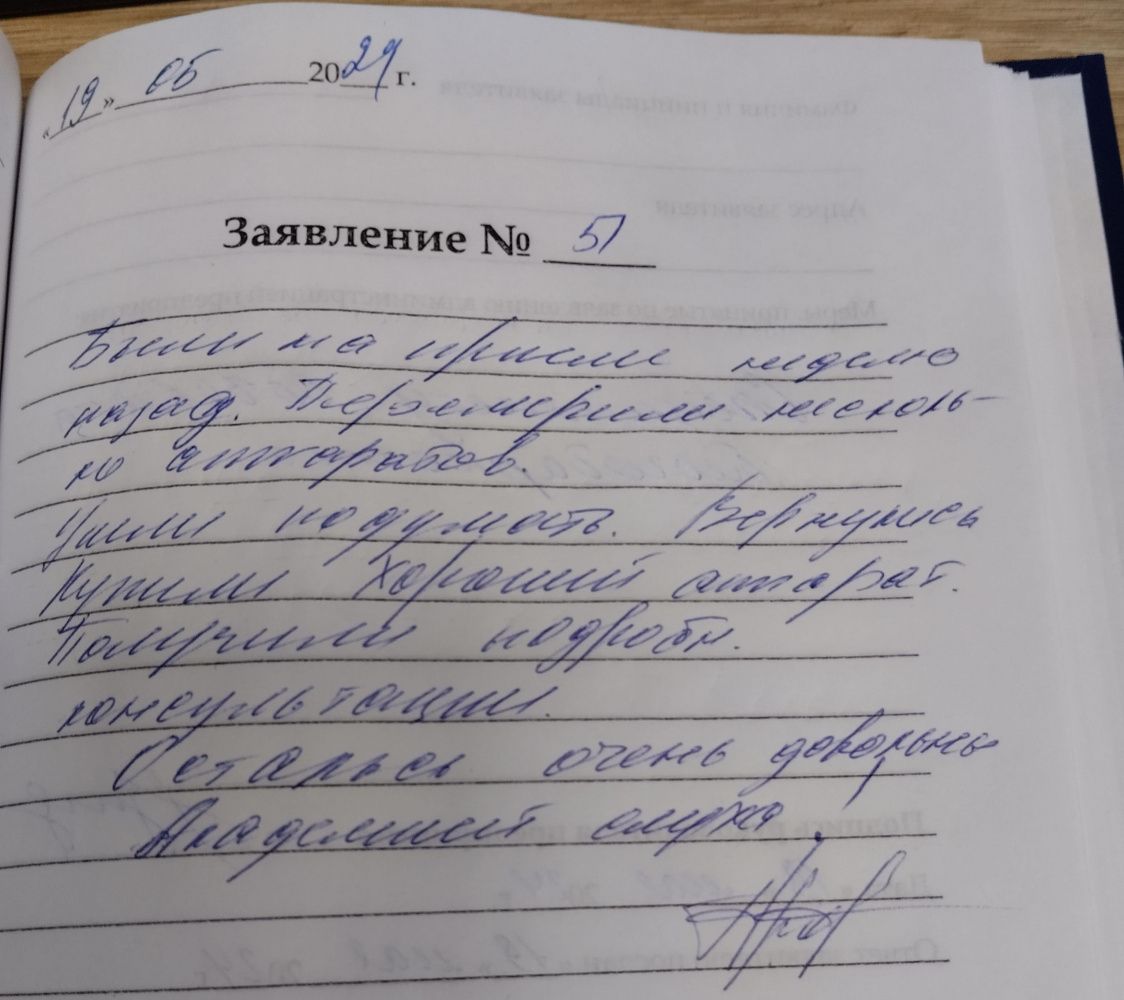 «19» 05 2024 г.
Заявление № 51
Были на приеме неделю
назад. Перемерили несколь-
ко аппаратов.
Ушли подумать. Вернулись
Купили хороший аппарат.
Получили подробн.
консультации.
Остались очень довольны
Академией слуха.